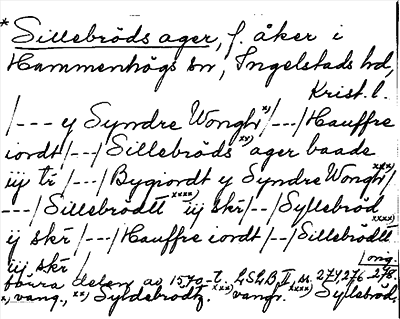 * Sillebröds ager, f. åker i
Hammenhögs sn, Ingelstads hd,
Krist. l.
/--- y Syndre Wongh x)/---/Hauffre
iordt/---/Sillebröds xx) ager baade
iij tr /---/Bygiordt y Syndre Wongh xxx)/
---/Sillebrödtt xxxx) iij skr/--/Syllebröd xxxx)
ij skr/---/Hauffre iordt/--/Sillebrödtt
iij skr/ Long.
förra delen av 1570-t. LSLB II, s. 274, 276-278.
x) vang., xx) Syldebrodtz. xxx) vangr. xxxx) Syllebröd.